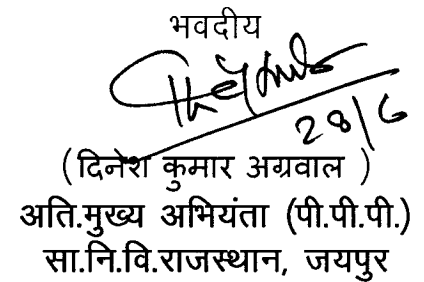 भवदीय
28/6
(दिनेश कुमार अग्रवाल )
अति.मुख्य अभियंता (पी.पी.पी.)
सा.नि.वि.राजस्थान, जयपुर